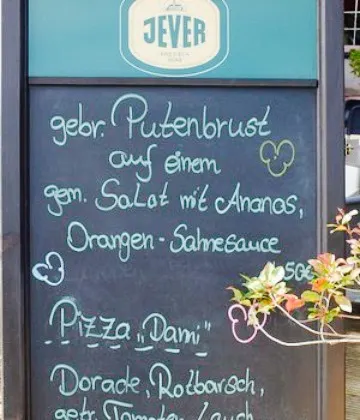 JEVER
gebr. Putenbrust
auf einem
gem. Salat mit Ananas,
Orangen-Sahnesauce
50€
Pizza „Dami"
Dorade, Rotbarsch,
getr. Tomaten, Lauch,